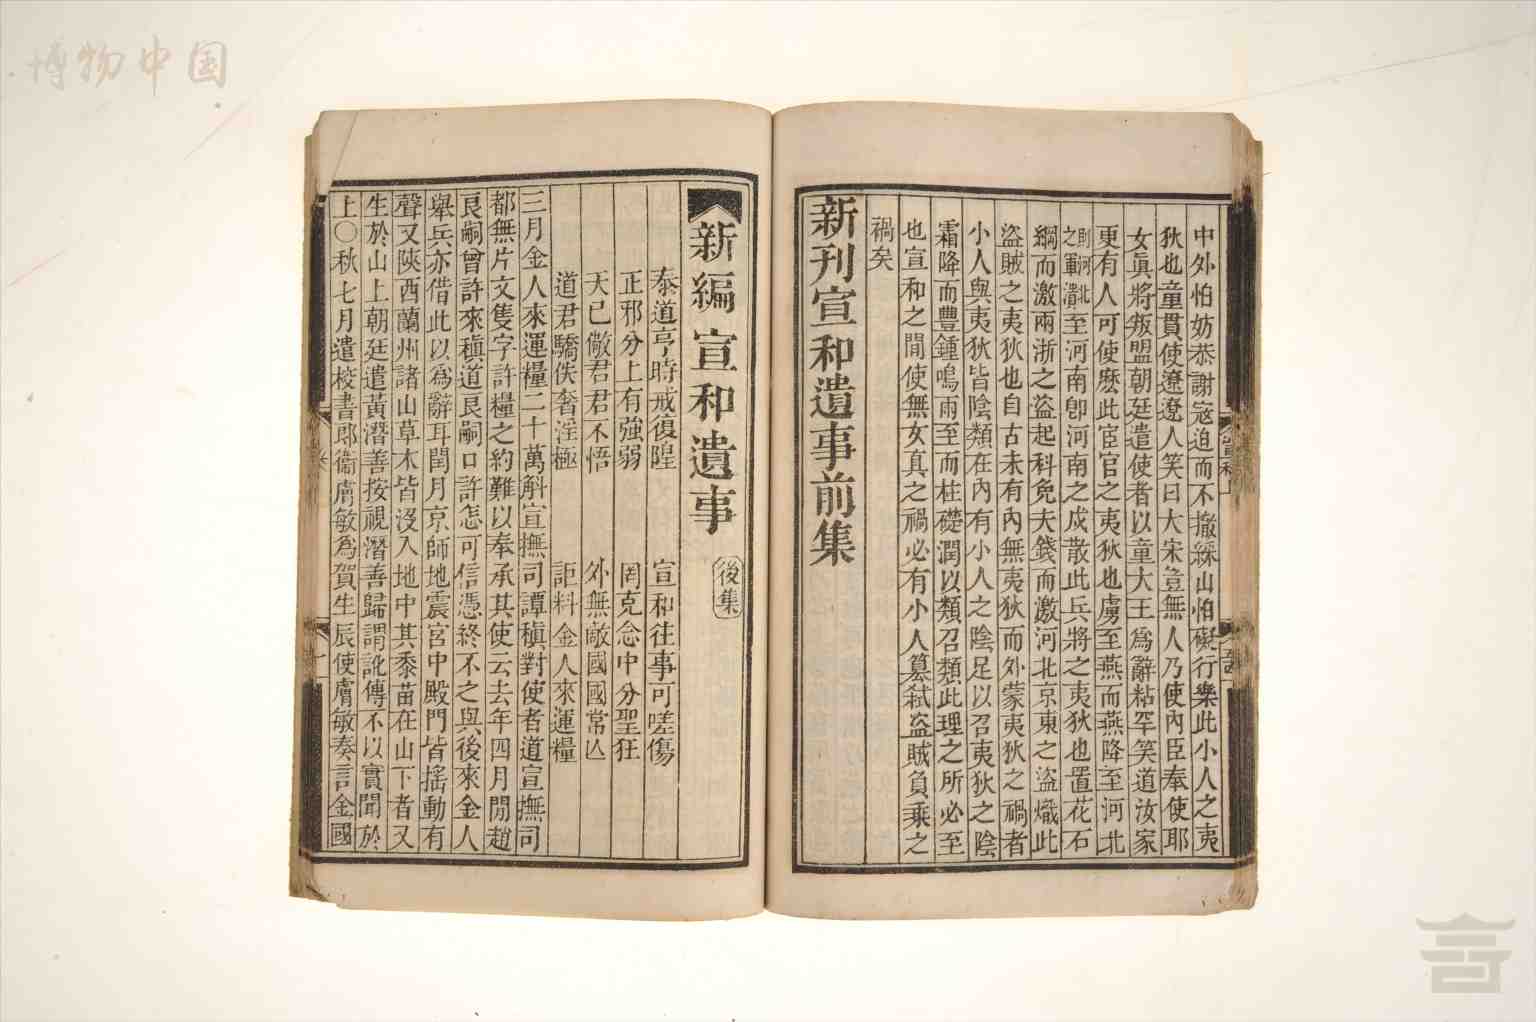 博物中国
中外怕妨恭謝寇迫而不撤綵山怕礙行樂此小人之夷
狄也童貫使遼遼人笑曰大宋豈無人乃使內臣奉使耶
女真將叛盟朝廷遣使者以童大王爲辭粘罕笑道汝家
更有人可使麽此宦官之夷狄也虜至燕而燕降至河北
則河北之軍潰至河南卽河南之戍散此兵將之夷狄也置花石
綱而激兩浙之盜起科免夫錢而激河北京東之盜熾此
盜賊之夷狄也自古未有內無夷狄而外蒙夷狄之禍者
小人與夷狄皆陰類在內有小人之陰足以召夷狄之陰
霜降而豐鍾鳴雨至而柱礎潤以類召類此理之所必至
也宣和之間使無女真之禍必有小人篡弒盜賊負乘之
禍矣
新刊宣和遺事前集
新編宣和遺事 後集
泰道亨時戒復隍 宣和往事可嗟傷
正邪分上有強弱 罔克念中分聖狂
天已儆君君不悟 外無敵國國常亾
道君驕佚奢淫極 詎料金人來運糧
三月金人來運糧二十萬斛宣撫司譚稹對使者道宣撫司
都無片文隻字許糧之約難以奉承其使云去年四月間趙
良嗣曾許來稹道良嗣口許怎可信憑終不之與後來金人
舉兵亦借此以爲辭耳閏月京師地震宮中殿門皆搖動有
聲又陝西蘭州諸山草木皆沒入地中其黍苗在山下者又
生於山上朝廷遣黃潛善按視潛善歸謂訛傳不以實聞於
上〇秋七月遣校書郎衞膚敏爲賀生辰使膚敏奏言金國